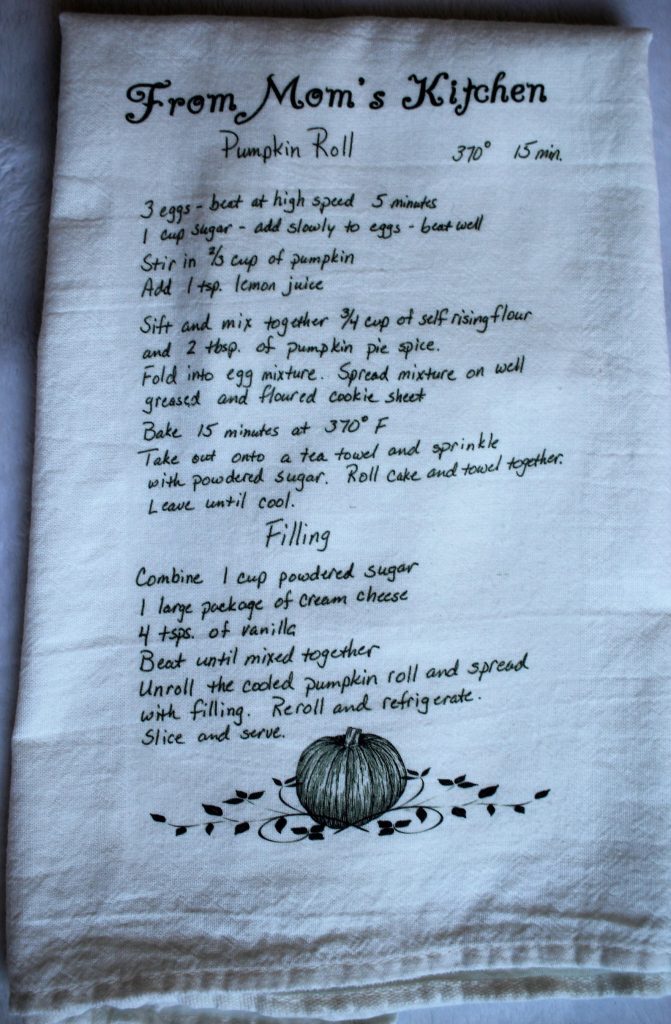 From Mom's Kitchen
Pumpkin Roll 370° 15 min.
3 eggs - beat at high speed 5 minutes
1 cup sugar - add slowly to eggs - beat well
Stir in 2/3 cup of pumpkin
Add 1 tsp. lemon juice
Sift and mix together 3/4 cup of self rising flour
and 2 tbsp. of pumpkin pie spice.
Fold into egg mixture. Spread mixture on well
greased and floured cookie sheet
Bake 15 minutes at 370° F
Take out onto a tea towel and sprinkle
with powdered sugar. Roll cake and towel together.
Leave until cool.
Filling
Combine 1 cup powdered sugar
1 large package of cream cheese
4 tsps. of vanilla
Beat until mixed together
Unroll the cooled pumpkin roll and spread
with filling. Reroll and refrigerate.
Slice and serve.